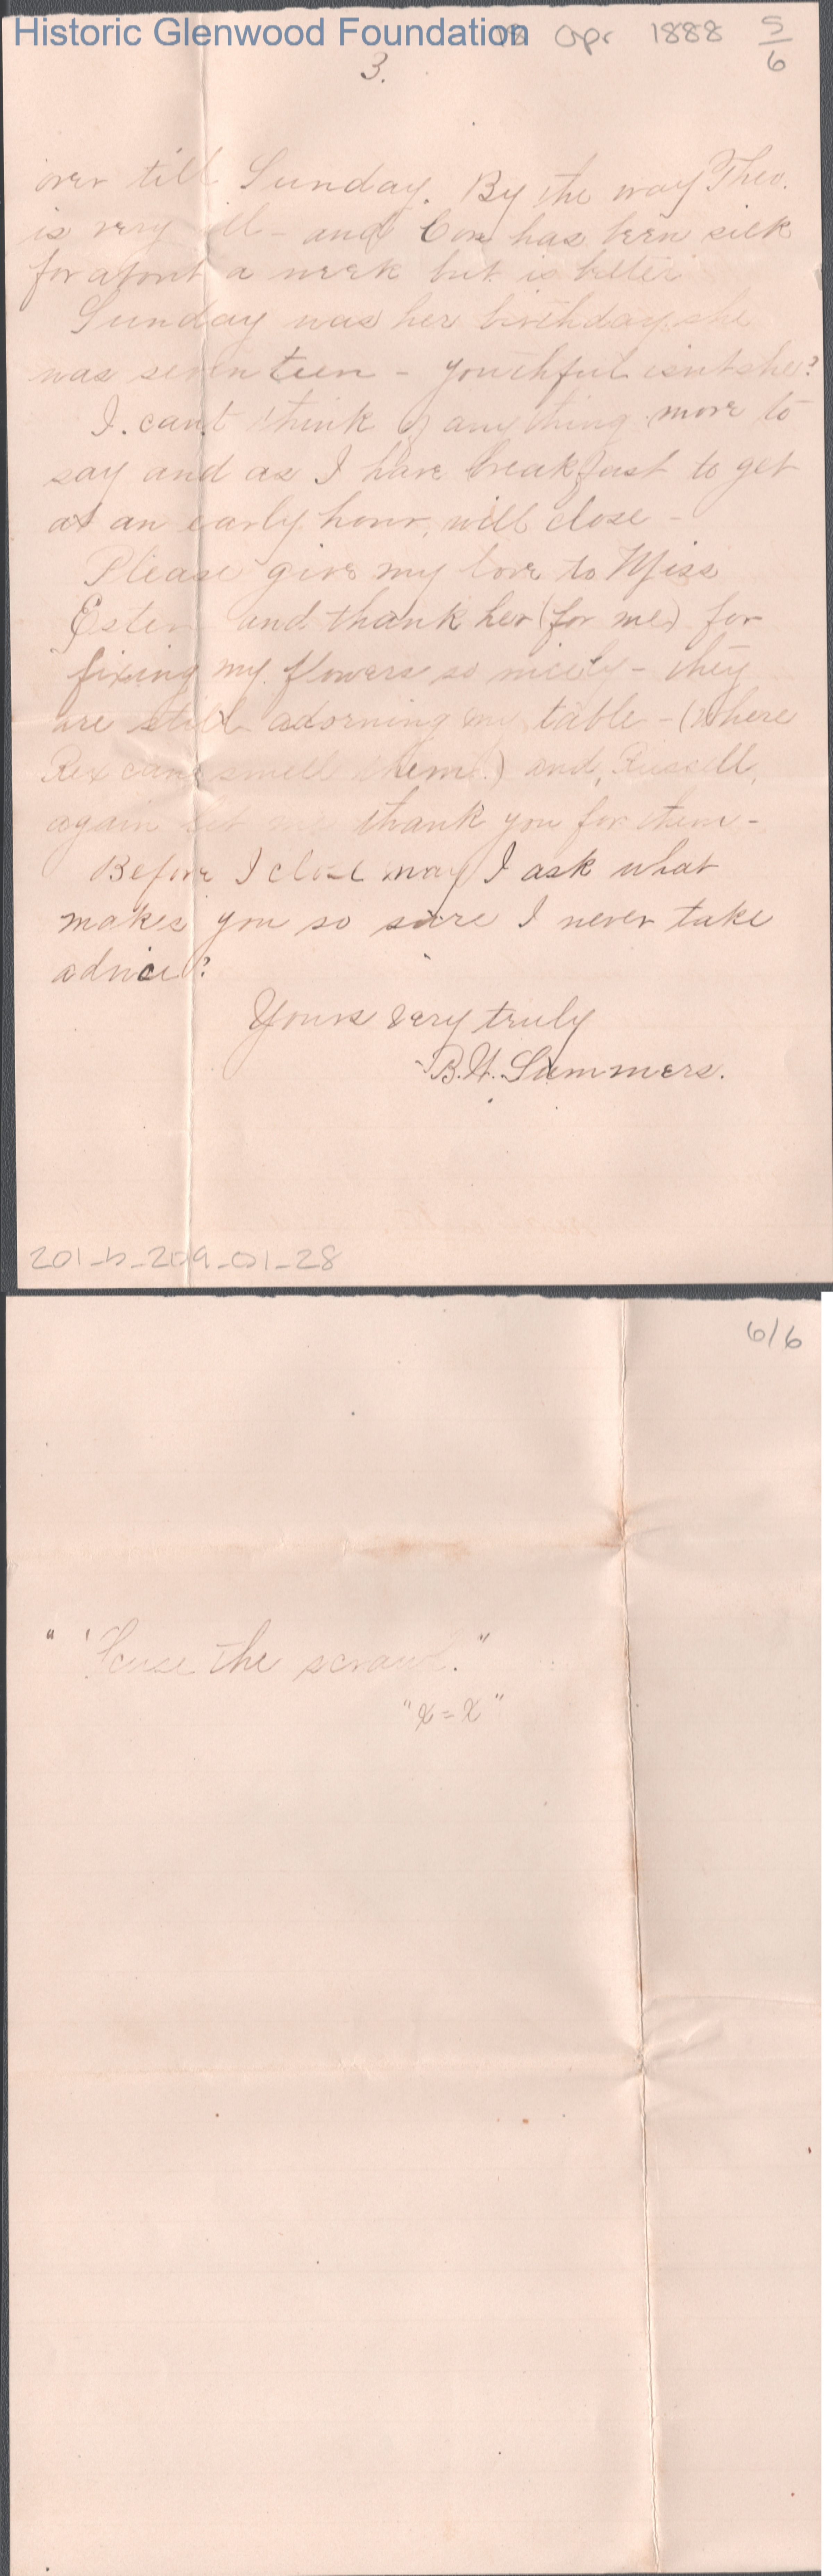 Historic Glenwood Foundation
18 Apr 1888 5/6
3.
over till Sunday. By the way Theo.
is very ill - and Con has been sick
for about a week but is better
Sunday was her birthday she
was seventeen - youthful isn't she?
I can't think of anything more to
say and as I have breakfast to get
at an early hour, will close -
Please give my love to Miss
Ester and thank her (for me) for
fixing my flowers so nicely - they
are still adorning my table - (where
Rex can smell them.) and, Russell,
again let me thank you for them -
Before I close may I ask what
makes you so sure I never take
advice?
Yours very truly
B.H. Summers.
201_b_209_01_28
6/6
" 'Scuse the scrawl."
"X = X"